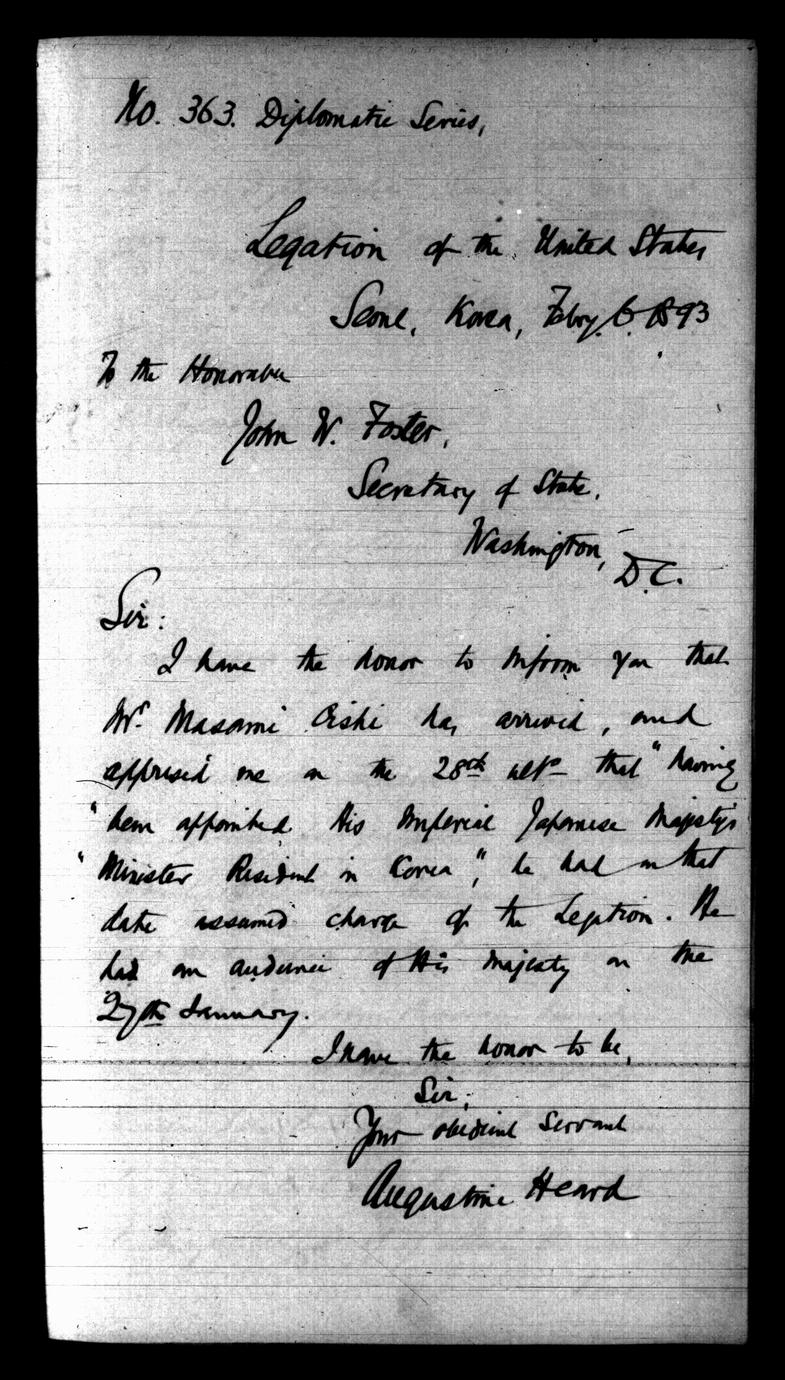 No. 363. Diplomatic Series,
Legation of the United States
Seoul, Korea, Feby. 6. 1893
To the Honorable
John W. Foster,
Secretary of State,
Washington,
D.C.
Sir:
I have the honor to inform you that
Mr. Masami Oishi has arrived, and
apprised me on the 28th ulto that "having
"been appointed His Imperial Japanese Majesty's
"Minister Resident in Korea", he had on that
date assumed charge of the Legation. He
had an audience of His Majesty on the
27th January.
I have the honor to be,
Sir,
Your obedient servant
Augustine Heard